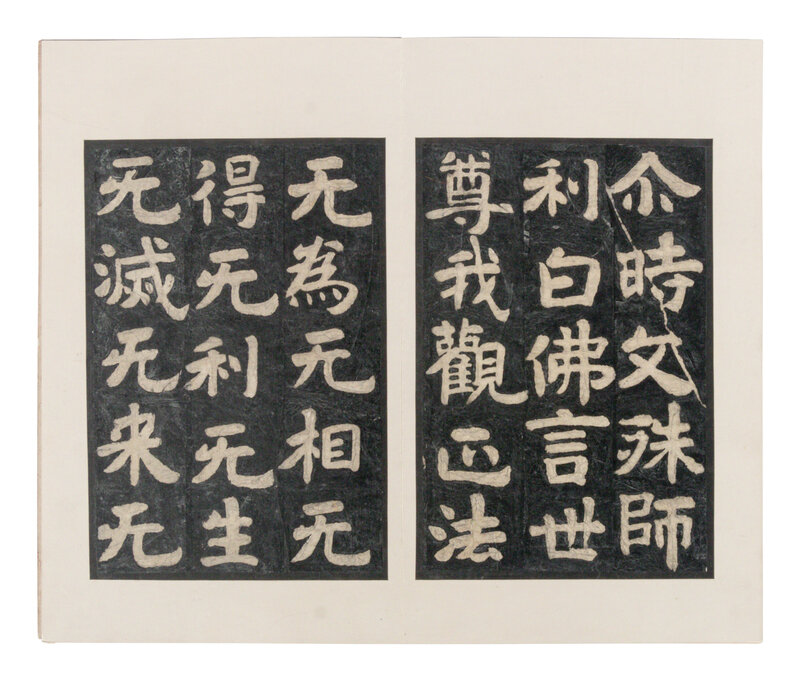 尒時文殊師
利白佛言世
尊我觀正法
无為无相无
得无利无生
无滅无来无